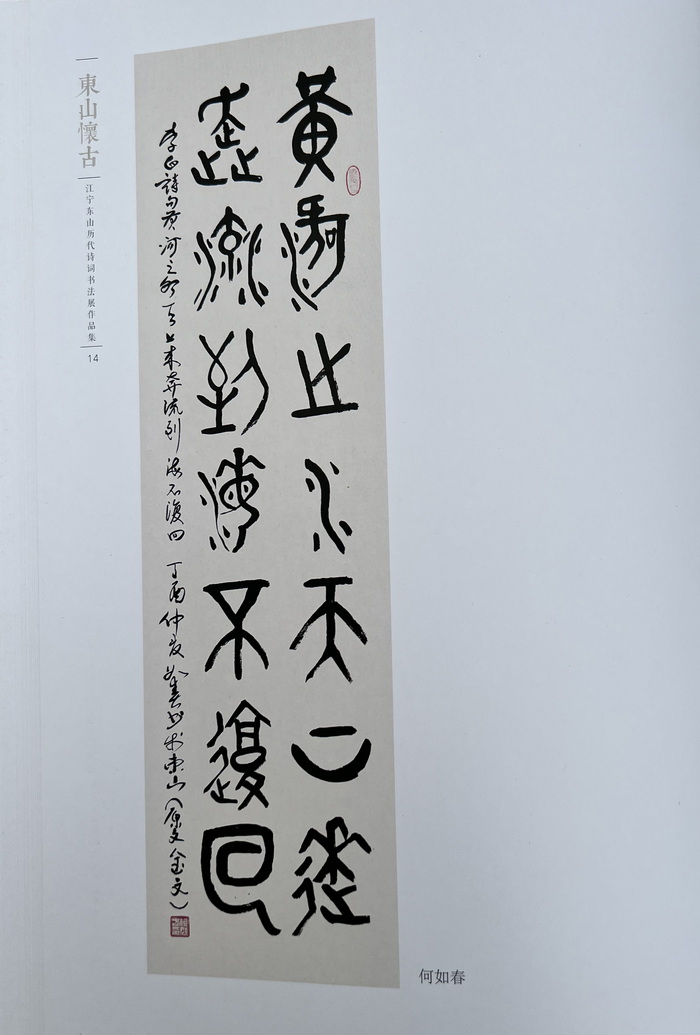 東山懷古
江宁东山历代诗词书法展作品集
14
黃河之水天上來
奔流到海不復回
李白詩句黄河之水天上来奔流到海不復回 丁酉仲夏如春书於東山（原文金文）
何如春